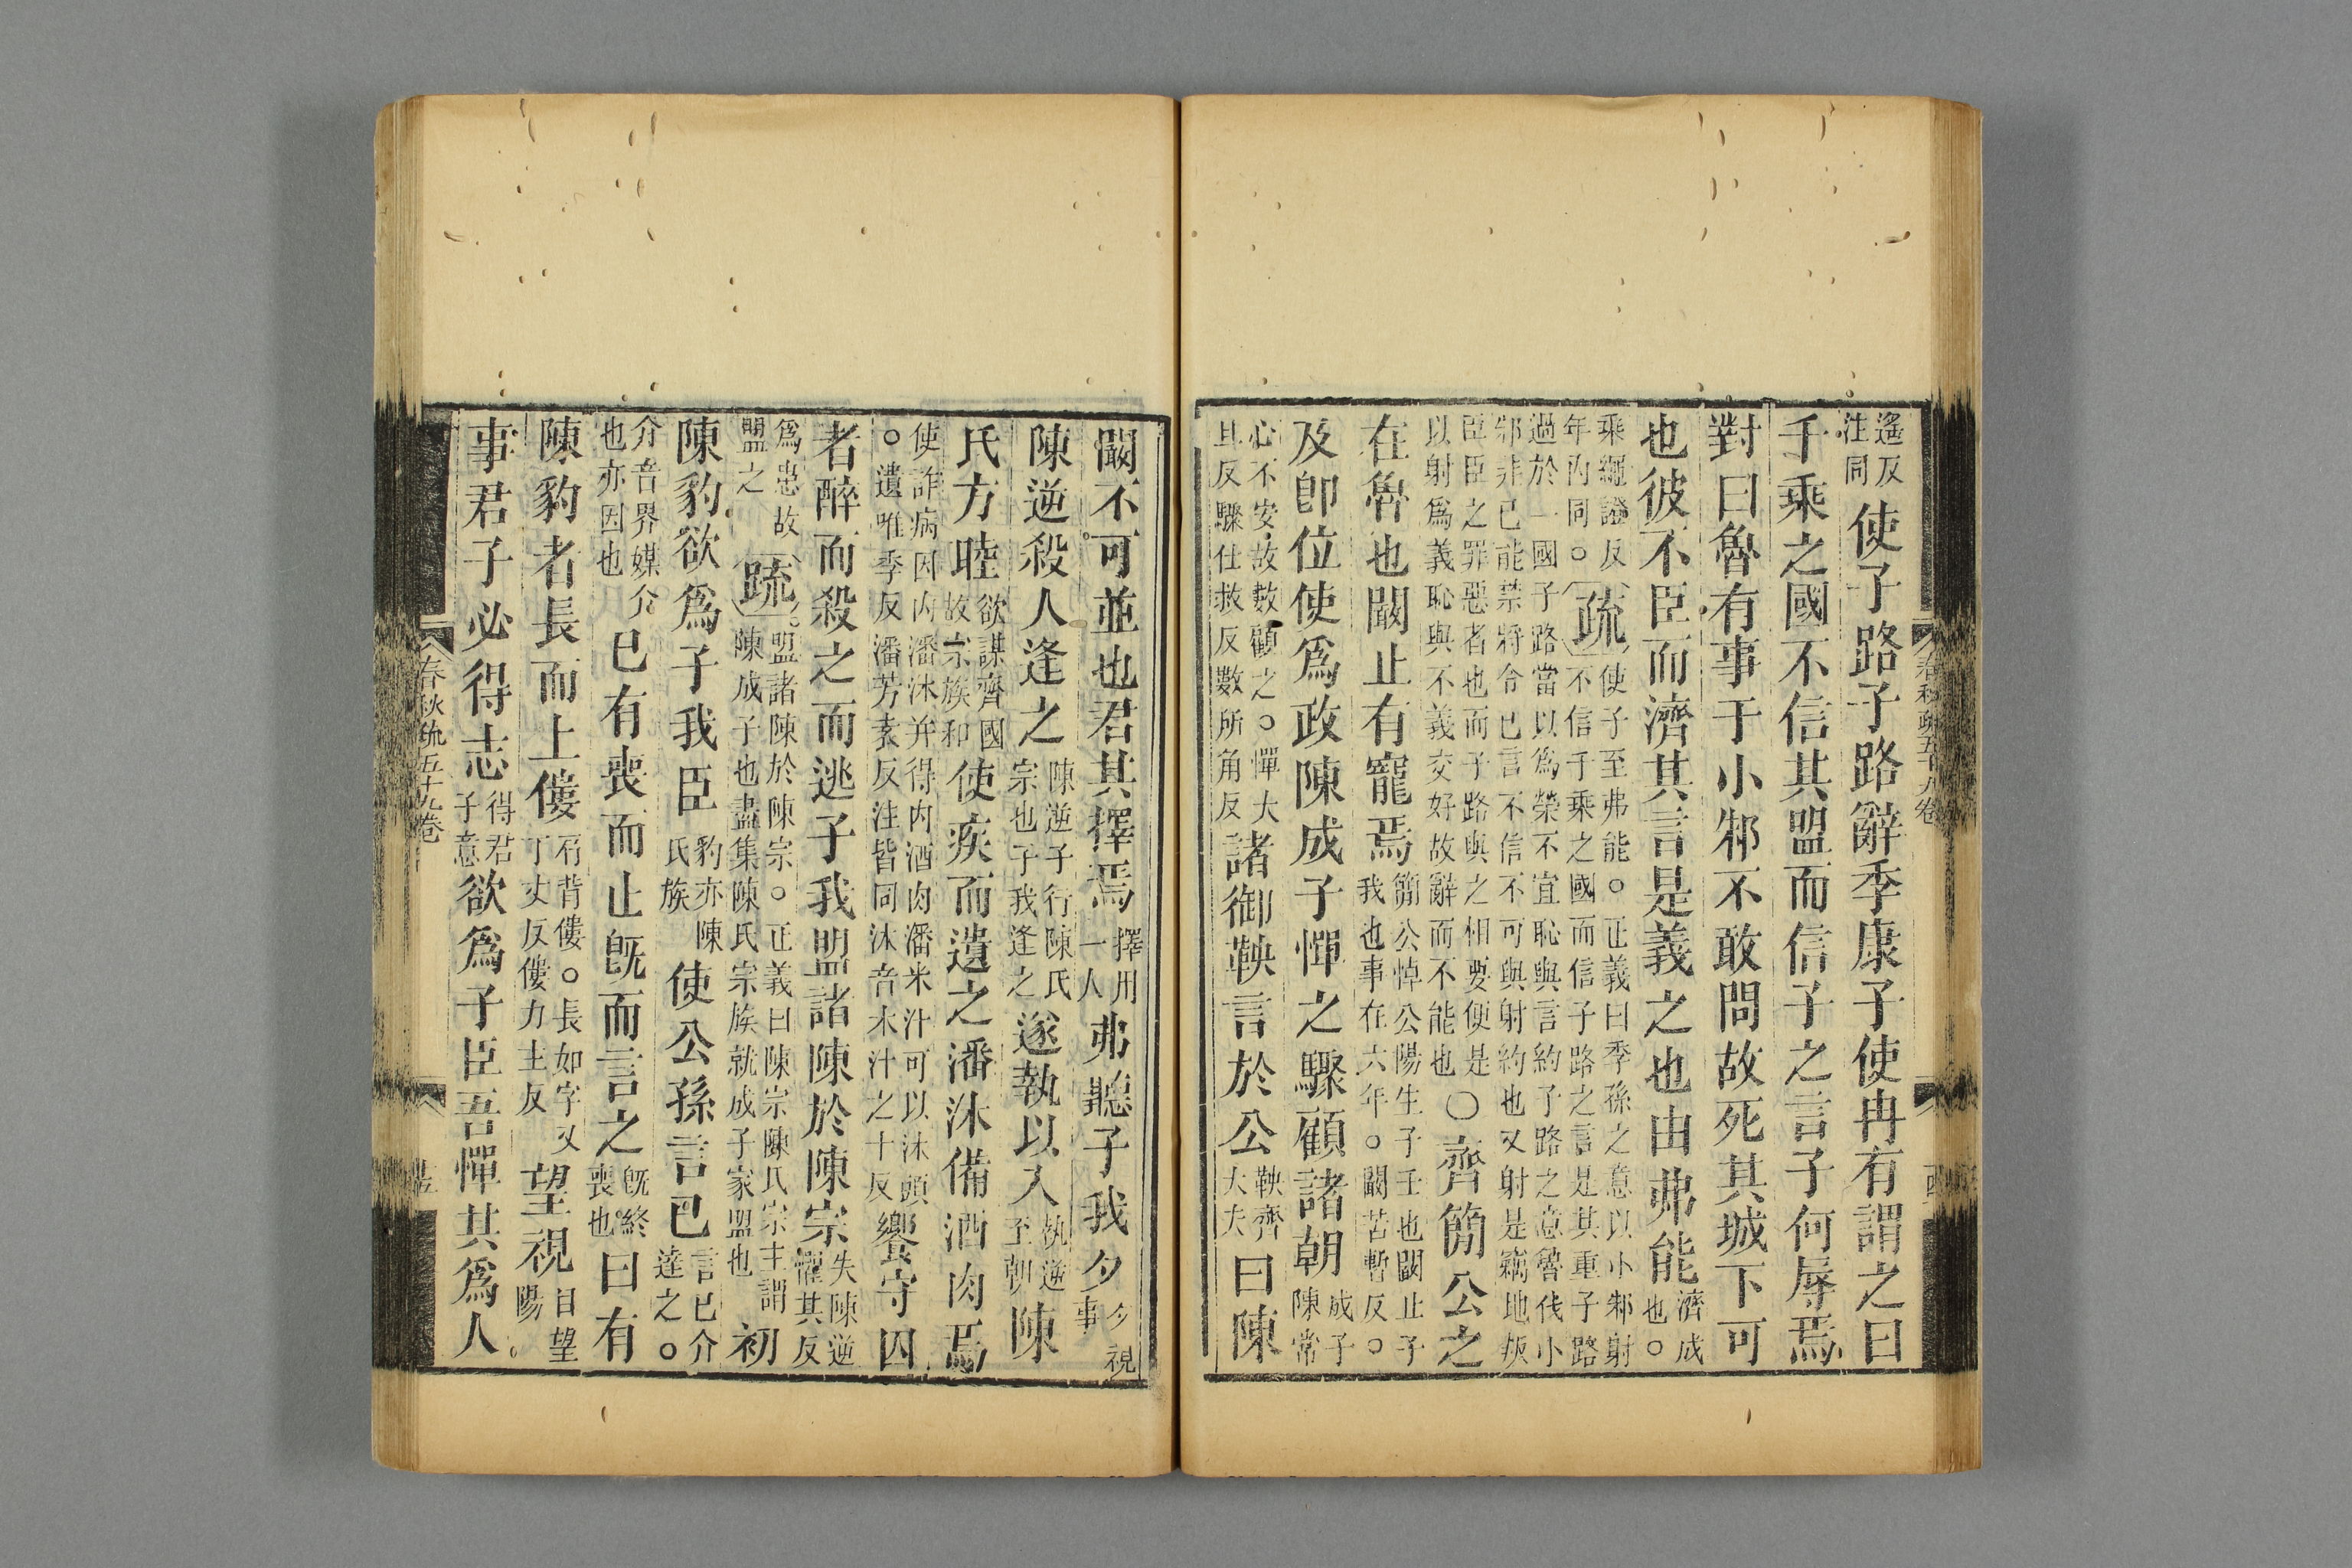 遙反注同使子路子路辭季康子使冉有謂之曰
千乘之國不信其盟而信子之言子何辱焉
對曰魯有事于小邾不敢問故死其城下可
也彼不臣而濟其言是義之也由弗能濟成也○
乘繩證反年內同○疏使子至弗能○正義曰季孫之意以小邾射不信千乘之國而信子路之言是其重子路
過於一國子路當以爲榮不宜恥與言約子路之意魯伐小邾非己能禁將令己言不信不可與射約也又射是竊地叛
臣臣之罪惡者也而子路與之相要便是以射爲義恥與不義交好故辭而不能也○齊簡公之
在魯也闞止有寵焉簡公悼公陽生子壬也闞止子我也事在六年○闞苦暫反○
及卽位使爲政陳成子憚之驟顧諸朝成子陳常
心不安故數顧之○憚大旦反驟仕救反數所角反諸御鞅言於公鞅齊大夫曰陳
春秋疏五十九卷
闞不可並也君其擇焉擇用一人弗聽子我夕夕視事
陳逆殺人逢之陳逆子行陳氏宗也子我逢之遂執以入執逆至朝陳
氏方睦欲謀齊國故宗族和使疾而遺之潘沐備酒肉焉
使詐病因內潘沐并得內酒肉潘米汁可以沐頭○遺唯季反潘芳袁反注皆同沐音木汁之十反饗守囚
者醉而殺之而逃子我盟諸陳於陳宗失陳逆懼其反
爲患故盟之疏盟諸陳於陳宗○正義曰陳宗陳氏宗主謂陳成子也盡集陳氏宗族就成子家盟也初
陳豹欲爲子我臣豹亦陳氏族使公孫言己言己介達之○
介音界媒介也亦因也已有喪而止旣而言之旣終喪也曰有
陳豹者長而上僂肩背僂○長如字又丁丈反僂力主反望視目望陽
事君子必得志得君子意欲爲子臣吾憚其爲人
春秋疏五十九卷